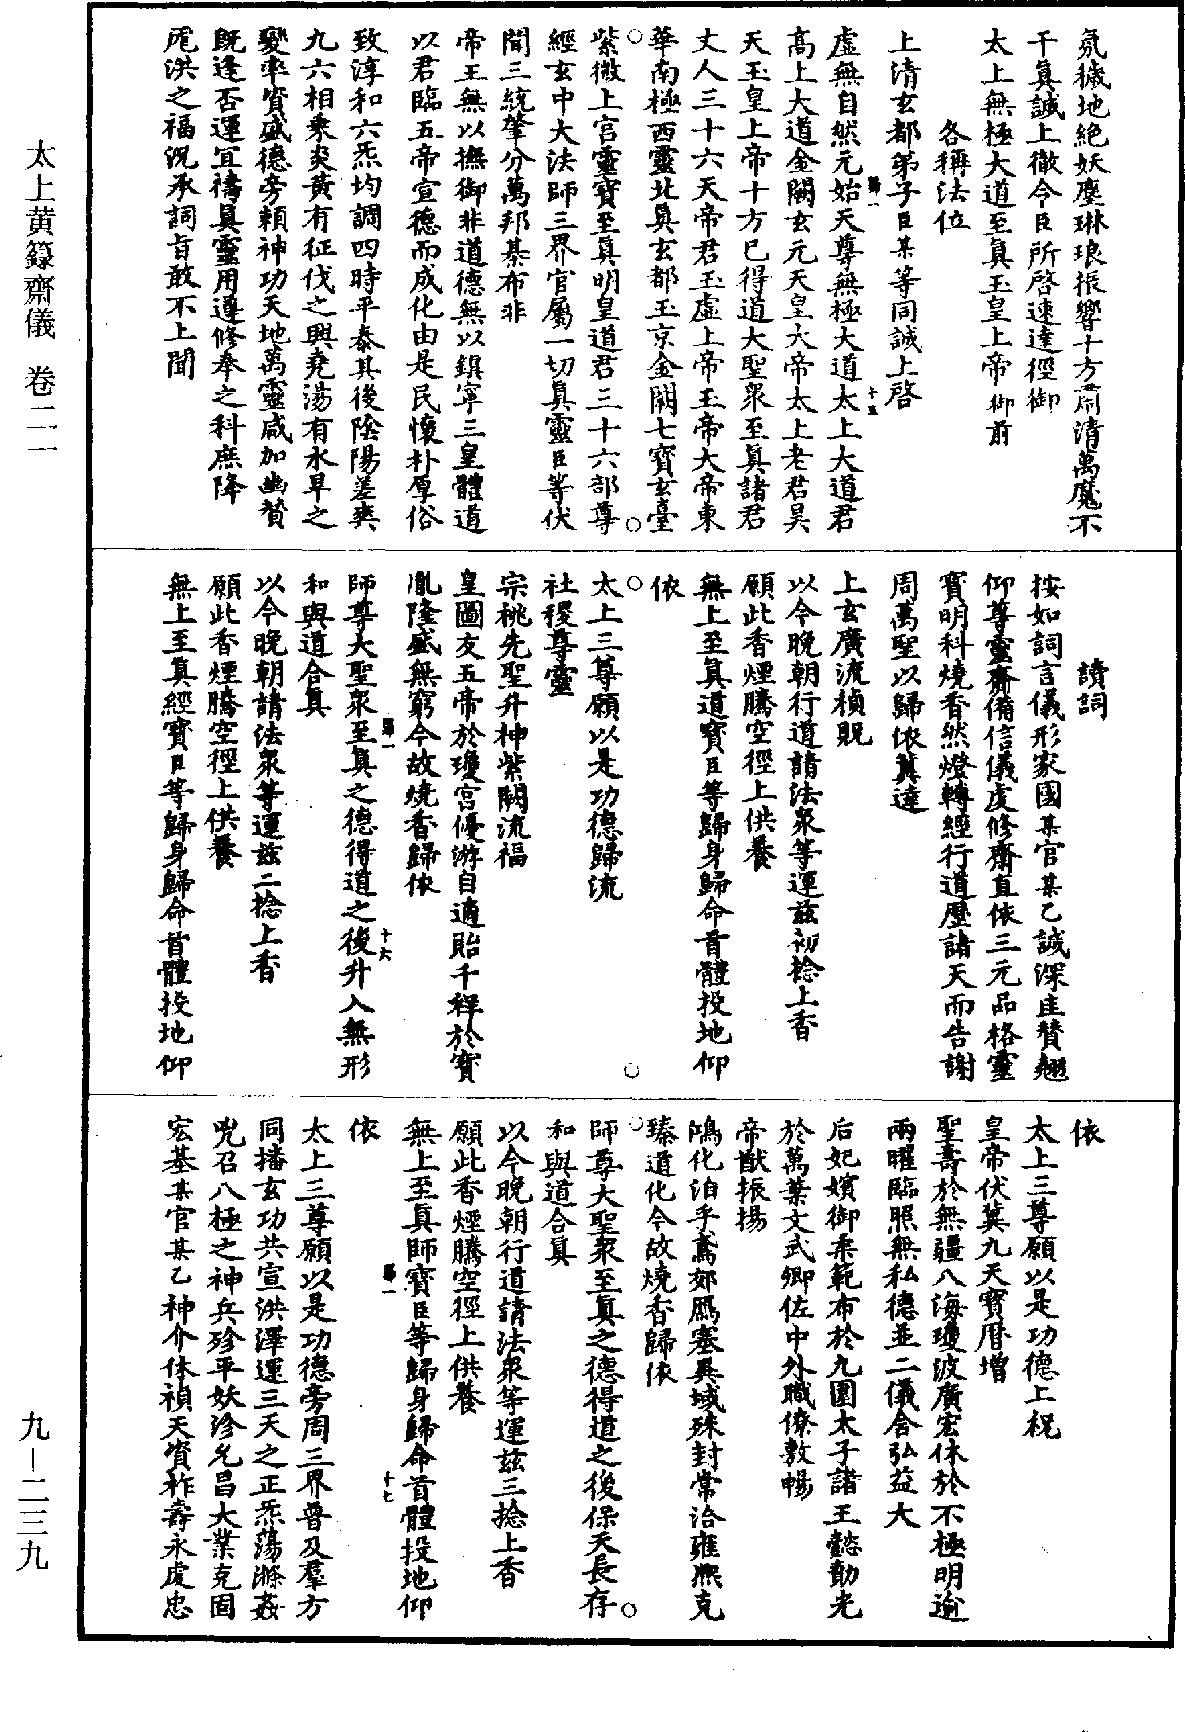 氛穢地絶妖塵琳琅振響十方肅清萬魔不
干真誠上徹今臣所啓速達徑御
太上無極大道至真玉皇上帝御前
各稱法位
上清玄都弟子臣某等同誠上啓
虛無自然元始天尊無極大道太上大道君
高上大道金闕玄元天皇大帝太上老君昊
天玉皇上帝十方已得道大聖衆至真諸君
丈人三十六天帝君玉虛上帝玉帝大帝東
華南極西靈北真玄都玉京金闕七寶玄臺
紫微上宮靈寶至真明皇道君三十六部尊
經玄中大法師三界官屬一切真靈臣等伏
聞三統肇分萬邦棊布非
帝王無以撫御非道德無以鎮寧三皇體道
以君臨五帝宣德而成化由是民懷朴厚俗
致淳和六炁均調四時平泰其後陰陽差爽
九六相乘炎黃有征伐之興堯湯有水旱之
變率資盛德旁賴神功天地萬靈咸加幽贊
既逢否運宜禱真靈用遵修奉之科庶降
厖洪之福況承詞旨敢不上聞
讀詞
按如詞言儀形家國某官某乙誠深匡贊翹
仰尊靈齋備信儀虔修齋直依三元品格靈
寶明科燒香然燈轉經行道歷諸天而告謝
周萬聖以歸依冀達
上玄廣流禎貺
以今晚朝行道請法衆等運茲初捻上香
願此香煙騰空徑上供養
無上至真道寶臣等歸身歸命首體投地仰
依
太上三尊願以是功德歸流
社稷尊靈
宗祧先聖升神紫闕流福
皇圖友五帝於瓊宮優游自適貽千釋於寶
胤隆盛無窮今故燒香歸依
師尊大聖衆至真之德得道之後升入無形
和與道合真
以今晚朝請法衆等運茲二捻上香
願此香煙騰空徑上供養
無上至真經寶臣等歸身歸命首體投地仰
依
太上三尊願以是功德上祝
皇帝伏冀九天寶曆增
聖壽於無疆八海瓊波廣宏休於不極明逾
兩曜臨照無私德並二儀含弘益大
后妃嬪御柔範布於九圍太子諸王懿勳光
於萬葉文武卿佐中外職僚敷暢
帝猷振揚
鴻化洎乎鳶郊鴈塞異域殊封常洽雍熙克
臻道化今故燒香歸依
師尊大聖衆至真之德得道之後保天長存
和與道合真
以今晚朝行道請法衆等運茲三捻上香
願此香煙騰空徑上供養
無上至真師寶臣等歸身歸命首體投地仰
依
太上三尊願以是功德旁周三界普及羣方
同播玄功共宣洪澤運三天之正炁蕩滌姦
兇召八極之神兵殄平妖沴允昌大業克固
宏基某官某乙神介休禎天資祚壽永虔忠
太上黄籙齋儀 卷二一
九—二三九